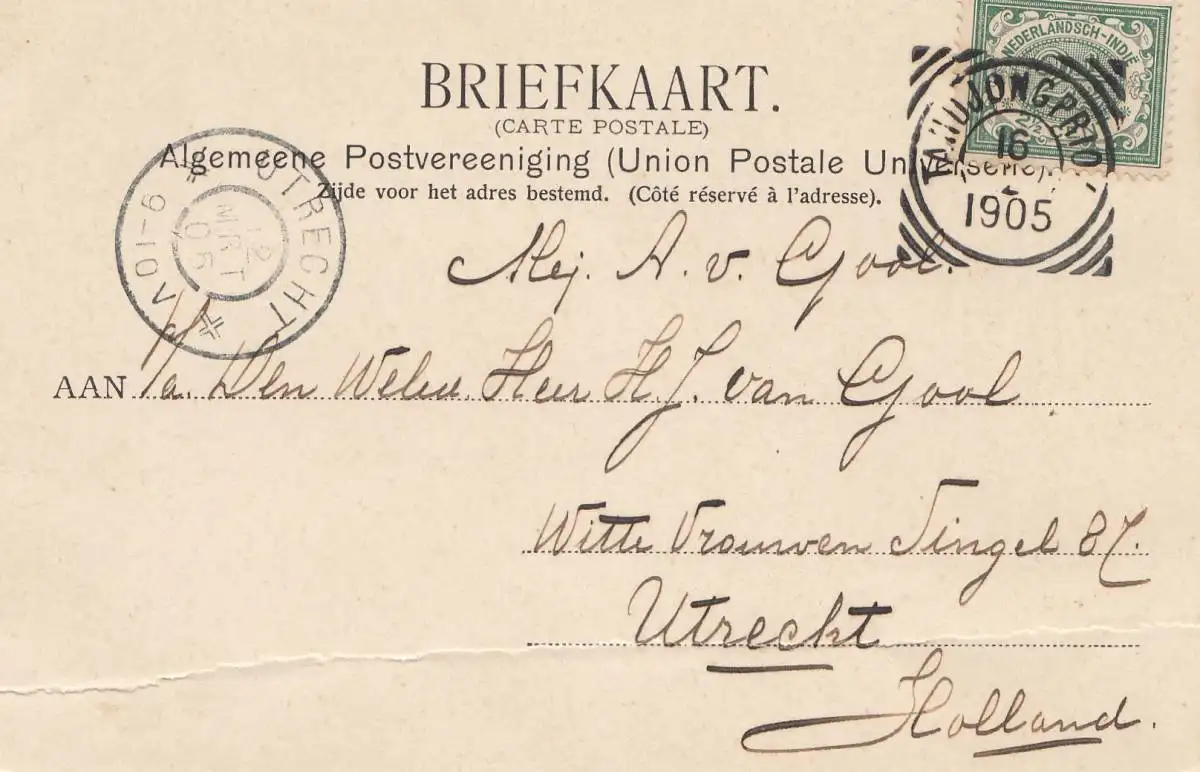 NEDERLANDSCH-INDIË
2½
BRIEFKAART.
(CARTE POSTALE)
Algemeene Postvereeniging (Union Postale Universelle).
Zijde voor het adres bestemd. (Côté réservé à l'adresse).
TANDJONGPRIO
16
2
1905
UTRECHT
12
MRT
05
9-10V
Mej. A. v. Gool.
AAN P/a. Den Weled. Heer H. J. van Gool
Witte Vrouwen Singel 87.
Utrecht
Holland.